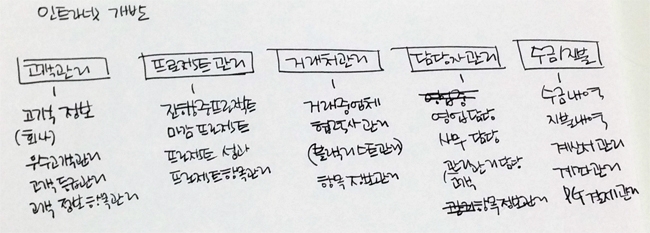 인트라넷 개발
고객관리
고객 정보
(회사)
우수고객관리
고객등급관리
고객 정보항목관리
프로젝트관리
진행중프로젝트
마감 프로젝트
프로젝트 성과
프로젝트항목관리
거래처관리
거래중업체
협력사관리
(블랙리스트관리)
항목정보관리
담당자관리
영업담당
사무 담당
관리
고객
항목정보관리
수금/지불
수금내역
지불내역
계산서관리
계좌관리
PG결제관리